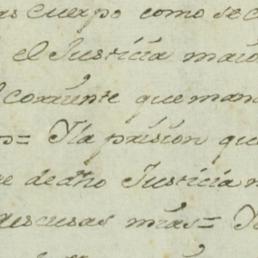 cuerpo como se
el Justicia maio
corriente que man
= Y la prision qu
de dho Justicia
escusas mas= Y